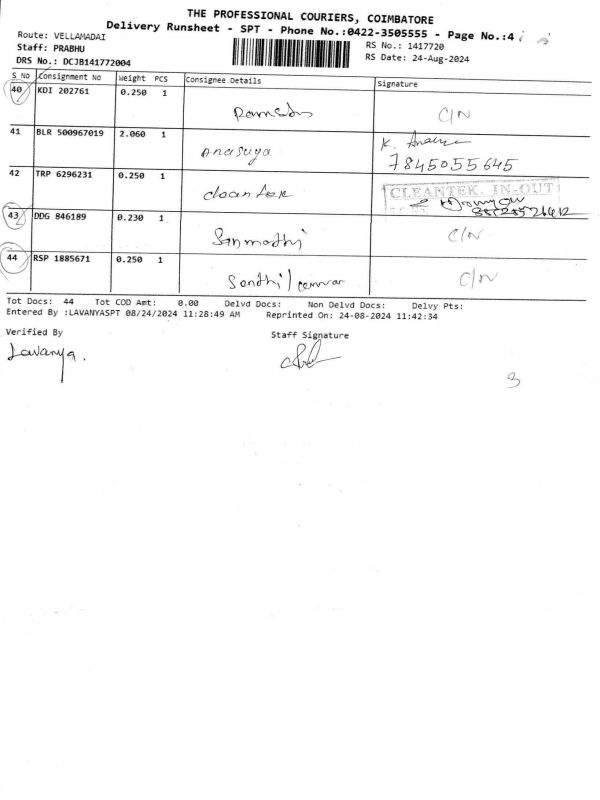 THE PROFESSIONAL COURIERS, COIMBATORE
Delivery Runsheet - SPT - Phone No.:0422-3505555 - Page No.:4
Route: VELLAMADAI
Staff: PRABHU
DRS No.: DCJB141772004
RS No.: 1417720
RS Date: 24-Aug-2024
S No Consignment No Weight PCS Consignee Details Signature
40 KDI 202761 0.250 1 C/N
41 BLR 500967019 2.060 1 Anasuya K. 7845055645
42 TRP 6296231 0.250 1 CLEANTEK. IN-OUT
43 DDG 846189 0.230 1 Sanmathi C/N
44 RSP 1885671 0.250 1 C/N
Tot Docs: 44 Tot COD Amt: 0.00 Delvd Docs: Non Delvd Docs: Delvy Pts:
Entered By :LAVANYASPT 08/24/2024 11:28:49 AM Reprinted On: 24-08-2024 11:42:34
Verified By Staff Signature
Lavanya.
3